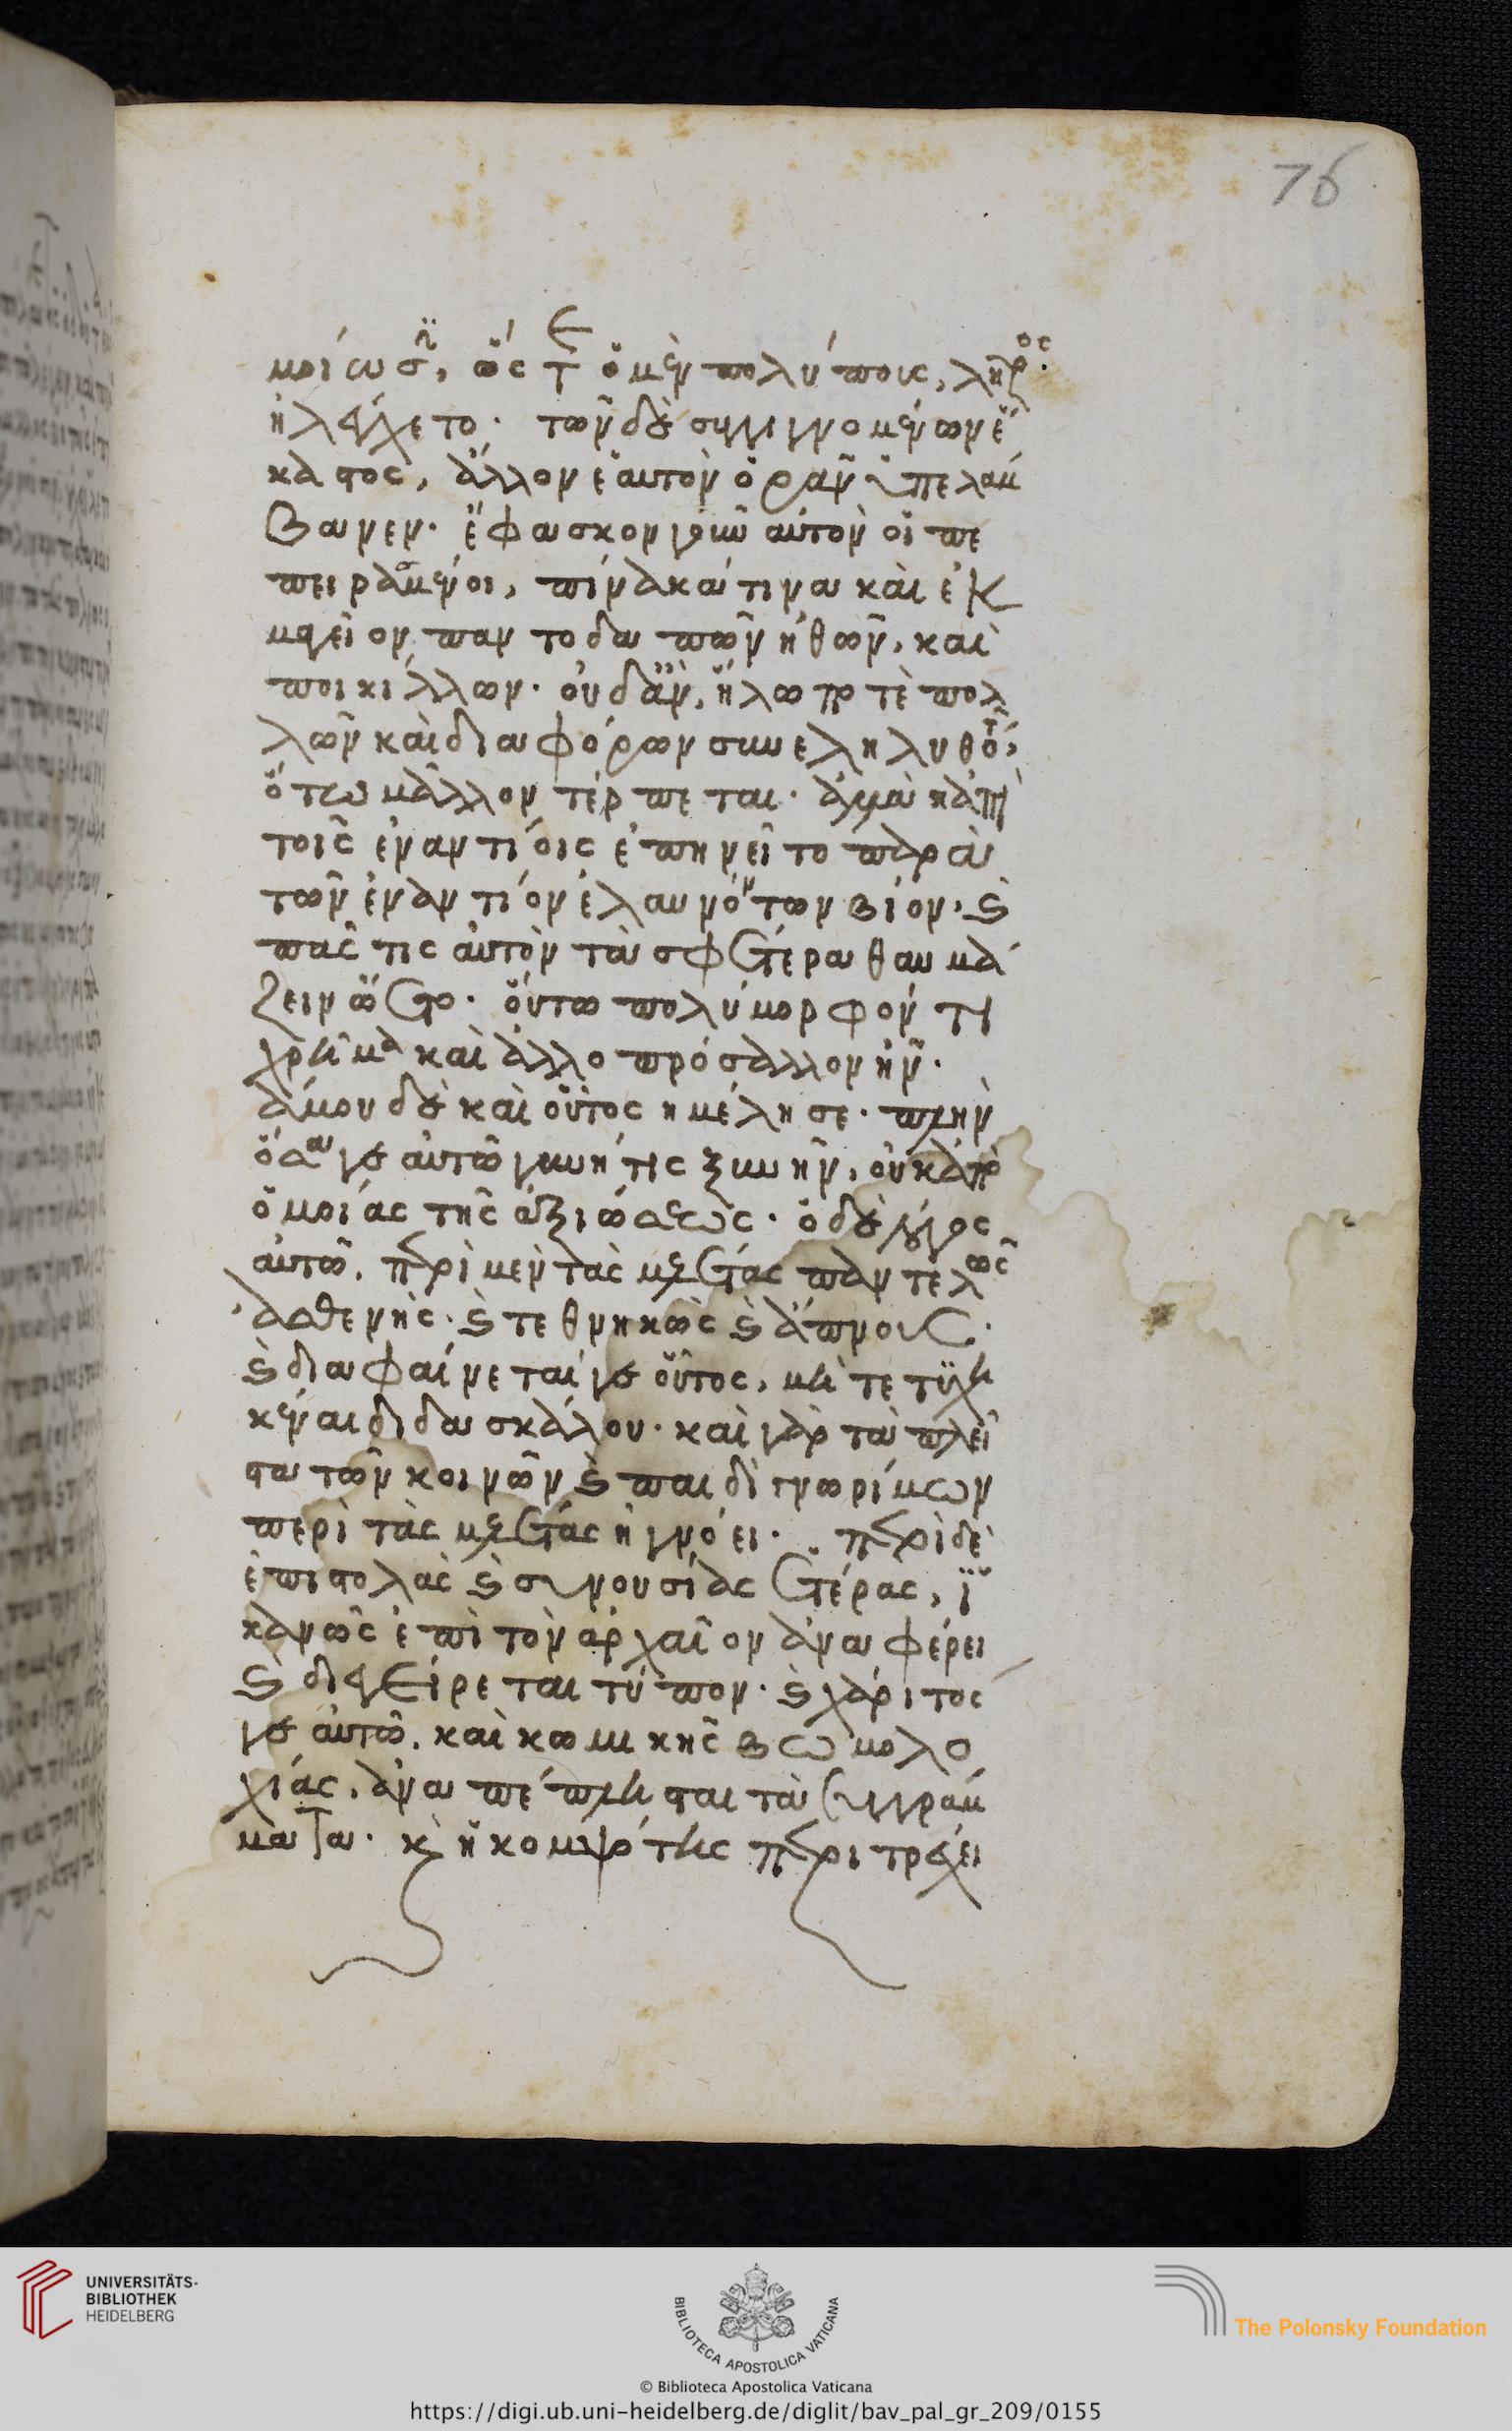 76
μοίωσιν, ὥστε ὁ μὲν πολύπους, λῆρος
ἠλέγχετο. τῶν δὲ συγγιγνομένων ἕ
καστος, ἄλλον ἑαυτὸν ὁρᾶν ὑπελάμ
βανεν. ἔφασκον γοῦν αὐτὸν οἱ πε
πειραμένοι, πίνακά τινα καὶ ἐκ
μαγεῖον παντοδαπῶν ἠθῶν, καὶ
ποικίλλων. οὐδ' ἂν, ἥλω
λῶν καὶ διαφόρων συνεληλυθότων,
ὅτῳ μᾶλλον τέρπεται. ἀλλὰ κἀπὶ
τοῖς ἐναντίοις ἐπῃνεῖτο παρὰ
τῶν ἐναντίον ἐλαυνόντων βίον, καὶ
πᾶς τις αὐτὸν τὰ σφέτερα θαυμά
ζειν ᾤετο. οὕτω πολύμορφόν τι
χρῆμα καὶ ἄλλο πρὸς ἄλλον ἦν.
γάμου δὲ καὶ οὗτος ἠμέλησε. πλὴν
ὅσα γε αὐτῷ γυνή τις ξυνῆν, οὐκ ἀπὸ
ὁμοίας τῆς ἀξιώσεως. ὁ δὲ λόγος
αὐτῷ, περὶ μὲν τὰς μελέτας παντελῶς
ἀσθενὴς. καὶ τεθνηκὼς καὶ ἄπνους.
καὶ διαφαίνεταί γε οὗτος, μήτε τύχῃ
διδασκάλου. καὶ γὰρ τὰ πλεῖ
στα τῶν κοινῶν καὶ παιδὶ γνωρίμων
περὶ τὰς μελέτας ἠγνόει. περὶ δὲ
ἐπιστολὰς καὶ συνουσίας ἑτέρας, ἱ
κανῶς ἐπὶ τὸν ἀρχαῖον ἀναφέρει
καὶ διεγείρεται τύπον. καὶ χάριτος
γε αὐτῷ, καὶ κωμικῆς βωμολο
χίας, ἀναπέπλησται τὰ συγγράμ
ματα. καὶ ἡ κομψότης περιτρέχει
UNIVERSITÄTS-
BIBLIOTHEK
HEIDELBERG
BIBLIOTECA APOSTOLICA VATICANA
The Polonsky Foundation
© Biblioteca Apostolica Vaticana
https://digi.ub.uni-heidelberg.de/diglit/bav_pal_gr_209/0155